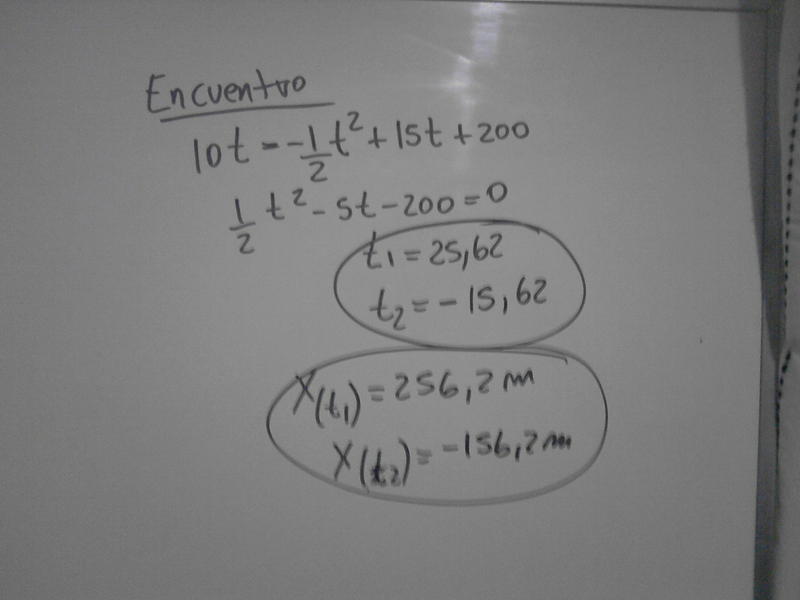 Encuentro
10t = -1/2 t² + 15t + 200
1/2 t² - 5t - 200 = 0
t₁ = 25,62
t₂ = -15,62
X(t₁) = 256,2 m
X(t₂) = -156,2 m